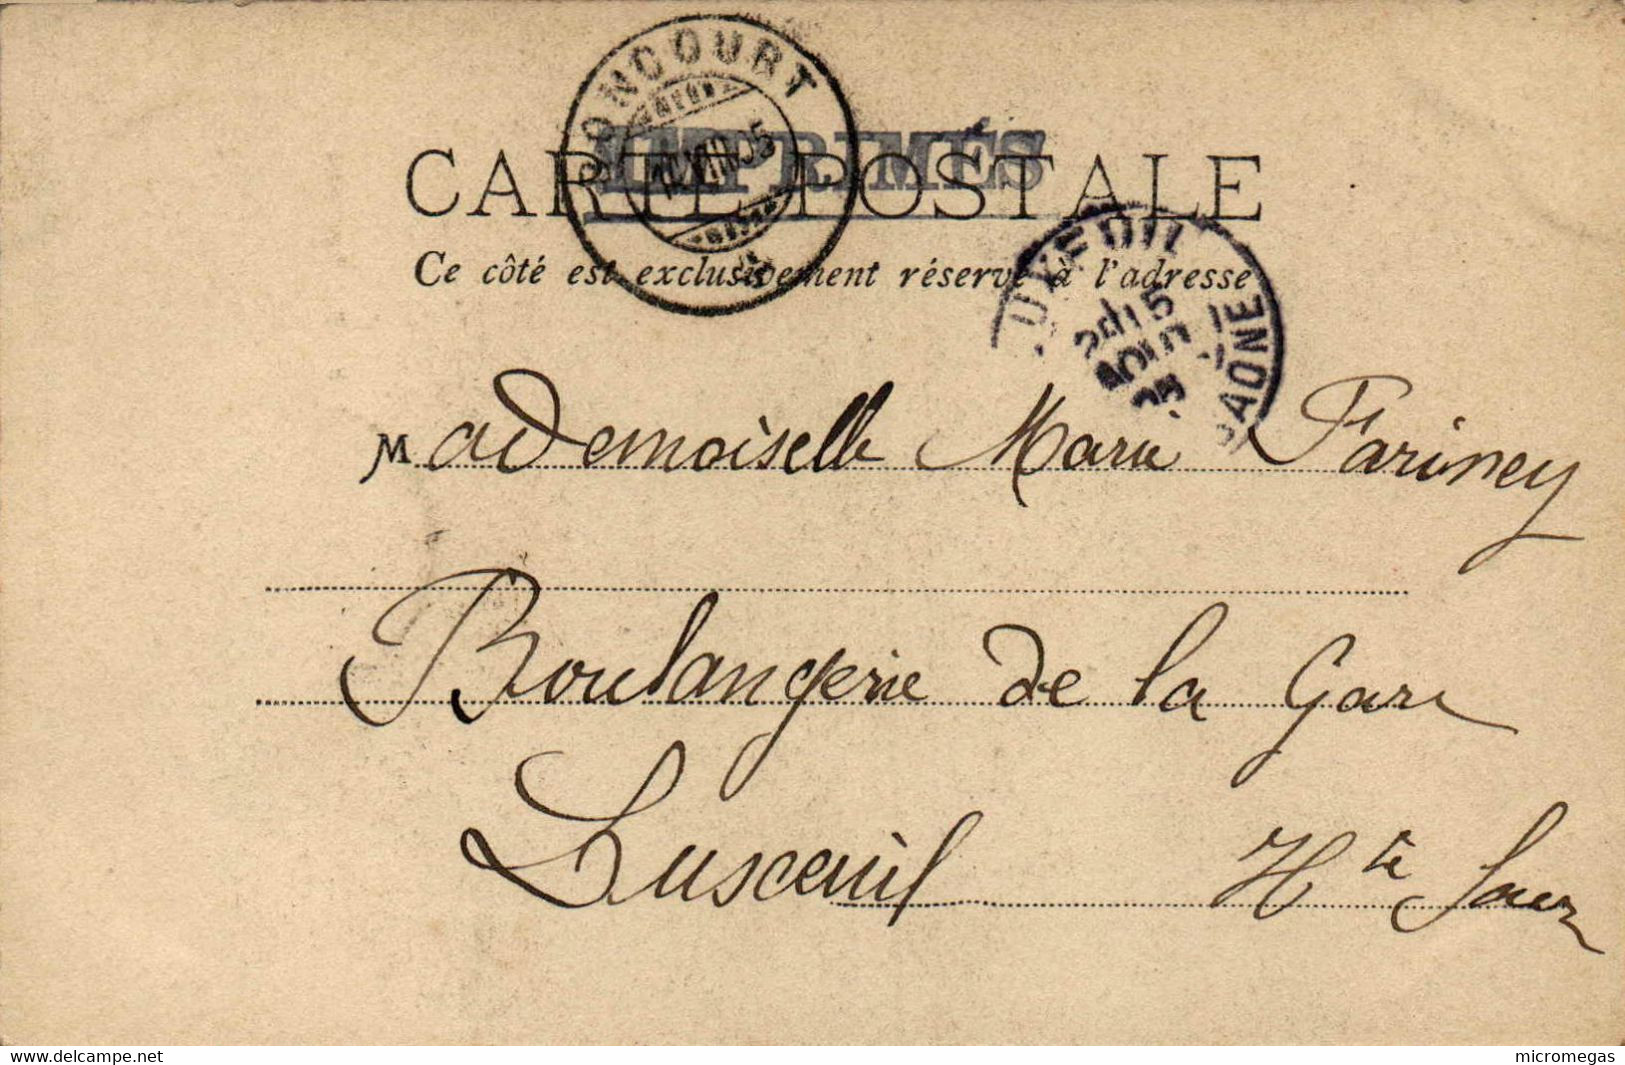 BONCOURT
14.VIII.05
IMPRIMÉS
CARTE POSTALE
Ce côté est exclusivement réservé à l'adresse
LUXEUIL
15
AOUT
05
SAONE
Mademoiselle Marie Fariney
Boulangerie de la Gare
Luxeuil Hte Saône
www.delcampe.net
micromegas